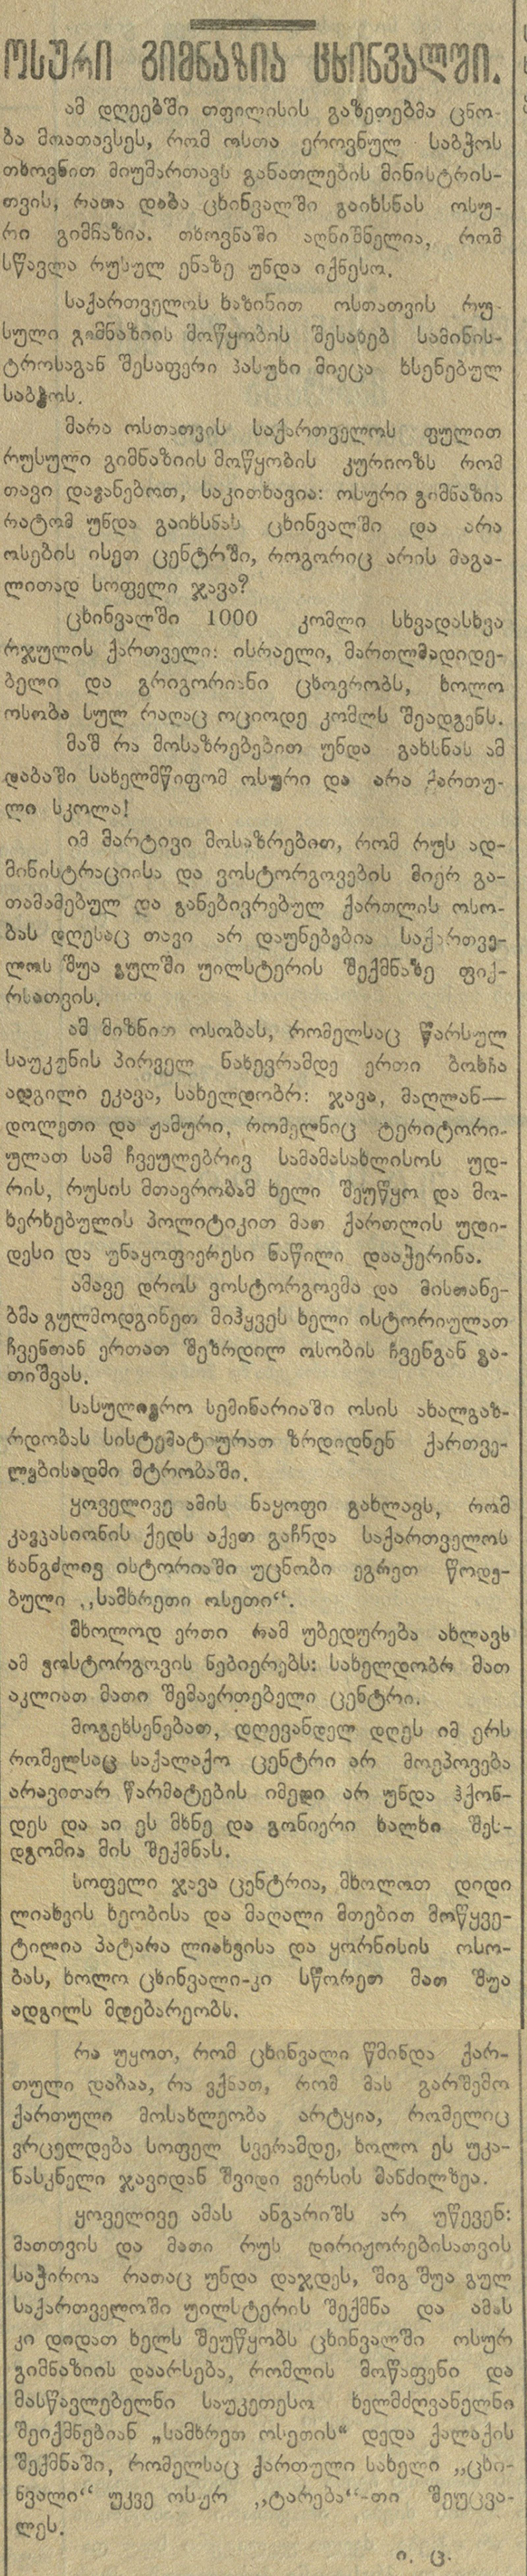 ოსური გიმნაზია ცხინვალში.
ამ დღეებში თფილისის გაზეთებმა ცნო-
ბა მოათავსეს, რომ ოსთა ეროვნულ საბჭოს
თხოვნით მიუმართავს განათლების მინისტრის-
თვის, რათა დაბა ცხინვალში გაიხსნას ოსუ-
რი გიმნაზია. თხოვნაში აღნიშნულია, რომ
სწავლა რუსულ ენაზე უნდა იქნესო.
საქართველოს ხაზინით ოსთათვის რუ-
სული გიმნაზიის მოწყობის შესახებ სამინის-
ტროსაგან შესაფერი პასუხი მიეცა ხსენებულ
საბჭოს.
მარა ოსთათვის საქართველოს ფულით
რუსული გიმნაზიის მოწყობის კურიოზს რომ
თავი დავანებოთ, საკითხავია: ოსური გიმნაზია
რატომ უნდა გაიხსნას ცხინვალში და არა
ოსების ისეთ ცენტრში, როგორიც არის მაგა-
ლითად სოფელი ჯავა?
ცხინვალში 1000 კომლი სხვადასხვა
რჯულის ქართველი: ისრაელი, მართლმადიდე-
ბელი და გრიგორიანი ცხოვრობს, ხოლო
ოსობა სულ რაღაც ოციოდე კომლს შეადგენს.
მაშ რა მოსაზრებებით უნდა გახსნას ამ
დაბაში სახელმწიფომ ოსური და არა ქართუ-
ლი სკოლა!
იმ მარტივი მოსაზრებით, რომ რუს ად-
მინისტრაციისა და ვოსტორგოვების მიერ გა-
თამამებულ და განებივრებულ ქართლის ოსო-
ბას დღესაც თავი არ დაუნებებია საქართვე-
ლოს შუა გულში უილსტერის შექმნაზე ფიქ-
რისათვის.
ამ მიზნით ოსობას, რომელსაც წარსულ
საუკუნის პირველ ნახევრამდე ერთი ბოხჩა
ადგილი ეკავა, სახელდობრ: ჯავა, მაღლან—
დოლეთი და ჟამური, რომელნიც ტერიტორი-
ულათ სამ ჩვეულებრივ სამამასახლისოს უდ-
რის, რუსის მთავრობამ ხელი შეუწყო და მო-
ხერხებულის პოლიტიკით მათ ქართლის უდი-
დესი და უნაყოფიერესი ნაწილი დააჭერინა.
ამავე დროს ვოსტორგოვმა და მისთანე-
ბმა გულმოდგინეთ მიჰყვეს ხელი ისტორიულათ
ჩვენთან ერთათ შეზრდილ ოსობის ჩვენგან გა-
თიშვას.
სასულიერო სემინარიაში ოსის ახალგაზ-
რდობას სისტემატიურათ ზრდიდნენ ქართვე-
ლებისადმი მტრობაში.
ყოველივე ამის ნაყოფი გახლავს, რომ
კავკასიონის ქედს აქეთ გაჩნდა საქართველოს
ხანგძლივ ისტორიაში უცნობი ეგრეთ წოდე-
ბული ,,სამხრეთი ოსეთი“.
მხოლოდ ერთი რამ უბედურება ახლავს
ამ ვოსტორგოვის ნებიერებს: სახელდობრ მათ
აკლიათ მათი შემაერთებელი ცენტრი.
მოგეხსენებათ, დღევანდელ დღეს იმ ერს
რომელსაც საქალაქო ცენტრი არ მოეპოვება
არავითარ წარმატების იმედი არ უნდა ჰქონ-
დეს და აი ეს მხნე და გონიერი ხალხი შეს-
დგომია მის შექმნას.
სოფელი ჯავა ცენტრია, მხოლოთ დიდი
ლიახვის ხეობისა და მაღალი მთებით მოწყვე-
ტილია პატარა ლიახვისა და ყორნისის ოსო-
ბას, ხოლო ცხინვალი-კი სწორეთ მათ შუა
ადგილს მდებარეობს.
რა უყოთ, რომ ცხინვალი წმინდა ქარ-
თული დაბაა, რა ვქნათ, რომ მას გარშემო
ქართული მოსახლეობა არტყია, რომელიც
ვრცელდება სოფელ სვერამდე, ხოლო ეს უკა-
ნასკნელი ჯავიდან შვიდი ვერსის მანძილზეა.
ყოველივე ამას ანგარიშს არ უწევენ:
მათთვის და მათი რუს დირიჟორებისათვის
საჭიროა რათაც უნდა დაჯდეს, შიგ შუა გულ
საქართველოში უილსტერის შექმნა და ამას
კი დიდათ ხელს შეუწყობს ცხინვალში ოსურ
გიმნაზიის დაარსება, რომლის მოწაფენი და
მასწავლებელნი საუკეთესო ხელმძღვანელნი
შეიქმნებიან „სამხრეთ ოსეთის“ დედა ქალაქის
შექმნაში, რომელსაც ქართული სახელი ,,ცხი-
ნვალი“ უკვე ოსურ ,,ტარება“-თი შეუცვა-
ლეს.
ი. ც.